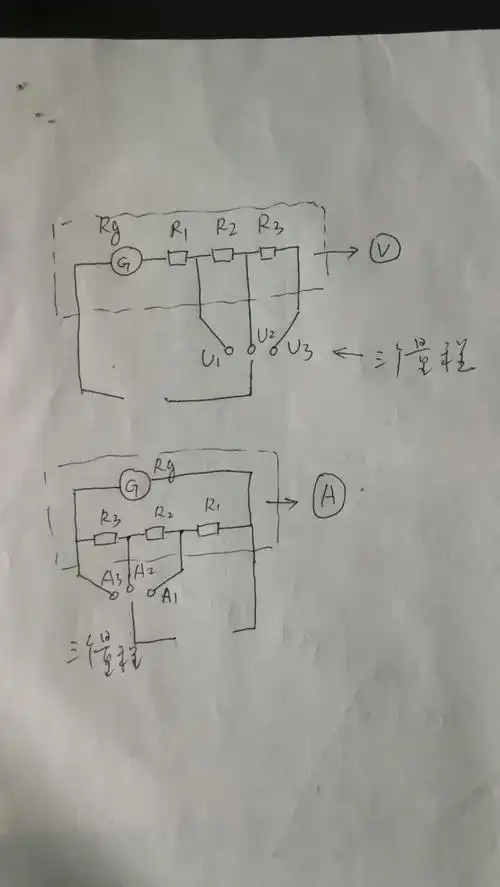 Rg R1 R2 R3
G
V
U1 U2 U3 三个量程
Rg
G
A
R3 R2 R1
A3 A2 A1
三个量程